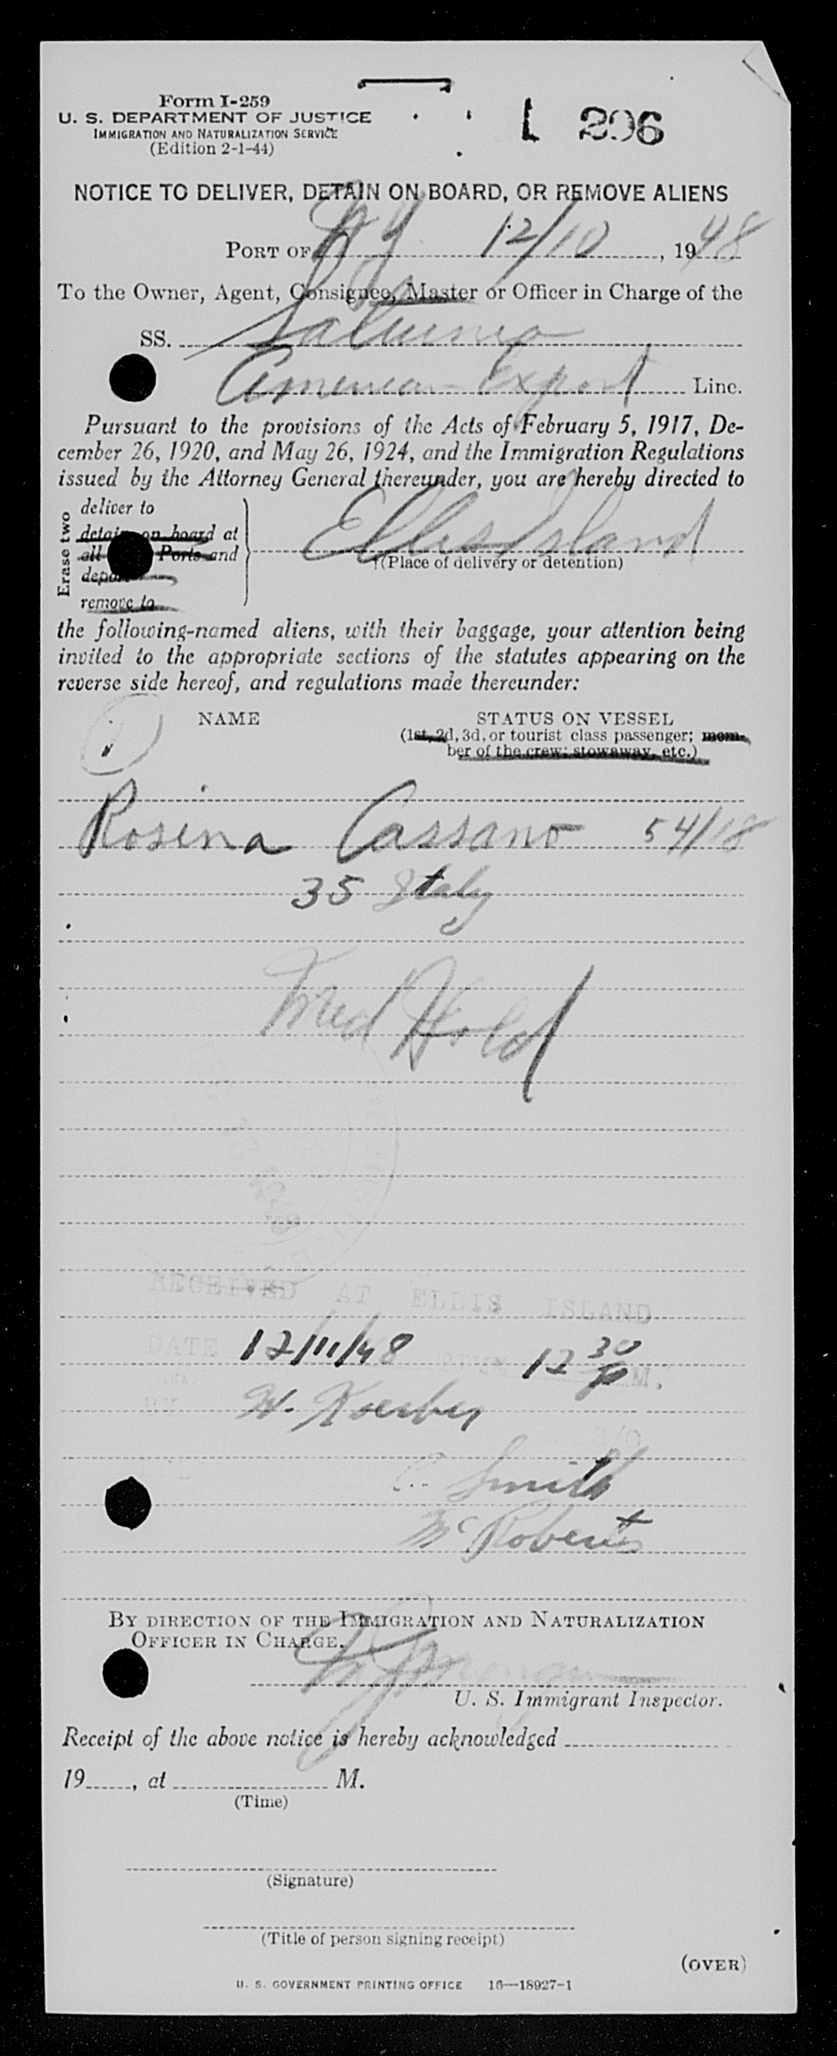 Form I-259
U. S. DEPARTMENT OF JUSTICE
IMMIGRATION AND NATURALIZATION SERVICE
(Edition 2-1-44)
L 296
NOTICE TO DELIVER, DETAIN ON BOARD, OR REMOVE ALIENS
PORT OF NY 12/10, 1948
To the Owner, Agent, Consignee, Master or Officer in Charge of the
SS. Saturnia
American Export Line.
Pursuant to the provisions of the Acts of February 5, 1917, De-
cember 26, 1920, and May 26, 1924, and the Immigration Regulations
issued by the Attorney General thereunder, you are hereby directed to
Erase two
deliver to
detain on board at
all Ports and
remove to
Ellis Island
(Place of delivery or detention)
the following-named aliens, with their baggage, your attention being
invited to the appropriate sections of the statutes appearing on the
reverse side hereof, and regulations made thereunder:
1
NAME STATUS ON VESSEL
(1st, 2d, 3d, or tourist class passenger; mem-
ber of the crew; stowaway, etc.)
Rosina Cassano 54/18
35 Italy
Med Hold
RECEIVED AT ELLIS ISLAND
DATE 12/11/48 12 30 P M.
W. Koerber
C. Smith
McRoberts
BY DIRECTION OF THE IMMIGRATION AND NATURALIZATION
OFFICER IN CHARGE.
U. S. Immigrant Inspector.
Receipt of the above notice is hereby acknowledged
19, at M.
(Time)
(Signature)
(Title of person signing receipt)
(OVER)
U. S. GOVERNMENT PRINTING OFFICE 16—18927-1